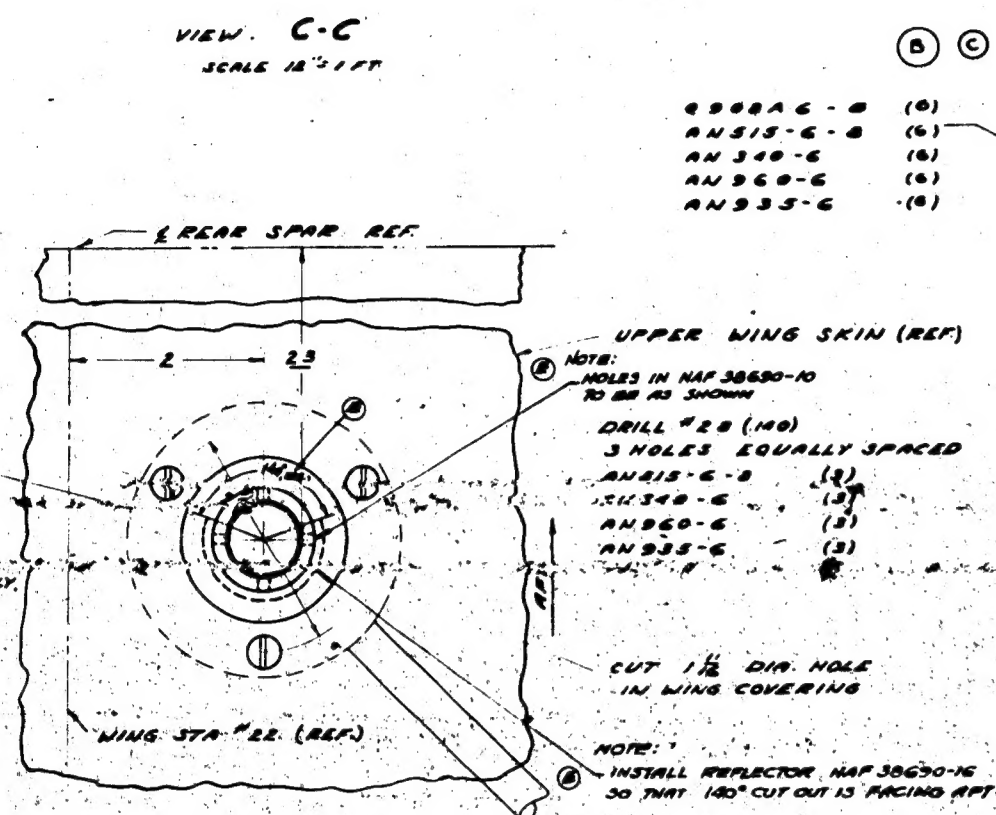 VIEW. C-C
SCALE 12"=1 FT
B C
AN515-6-8 (6)
AN 340-6 (6)
AN 960-6 (6)
AN 935-6 (6)
℄ REAR SPAR REF.
2
23
UPPER WING SKIN (REF.)
NOTE:
HOLES IN NAF 38690-10
TO BE AS SHOWN
DRILL #28 (.140)
3 HOLES EQUALLY SPACED
AN515-6-8 (3)
340-6 (3)
AN 960-6 (3)
AN 935-6 (3)
AFT
CUT 1 11/16 DIA. HOLE
IN WING COVERING
WING STA #22 (REF.)
NOTE:
INSTALL REFLECTOR NAF 38690-16
SO THAT 180° CUT OUT IS FACING AFT